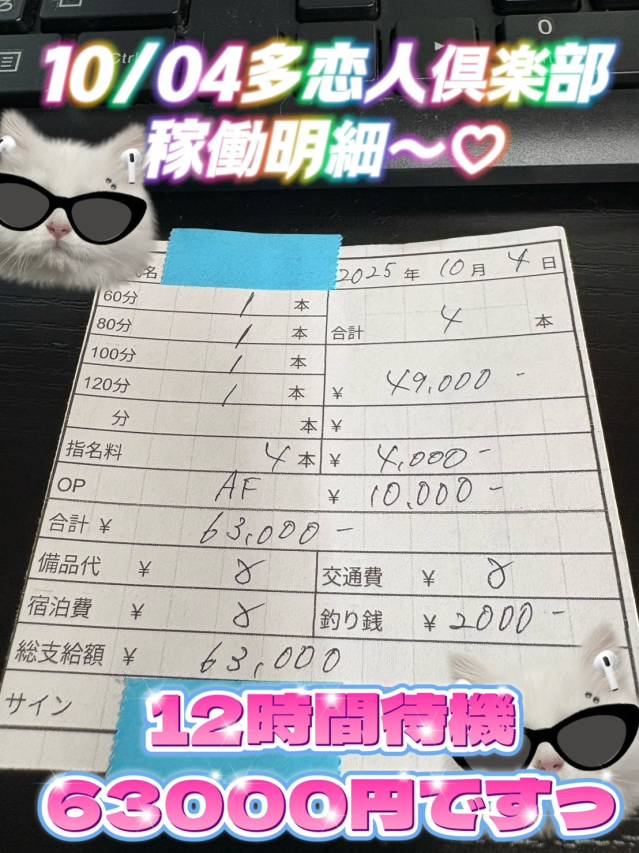 10/04多恋人倶楽部
稼働明細～♡
名 2025年 10月 4日
60分 1本
80分 1本 合計 4本
100分 1本
120分 1本 ¥ 49,000-
分 本 ¥
指名料 4本 ¥ 4,000-
OP AF ¥ 10,000-
合計 ¥ 63,000-
備品代 ¥ 0 交通費 ¥ 0
宿泊費 ¥ 0 釣り銭 ¥ 2000-
総支給額 ¥ 63,000
サイン
12時間待機
63000円ですっ